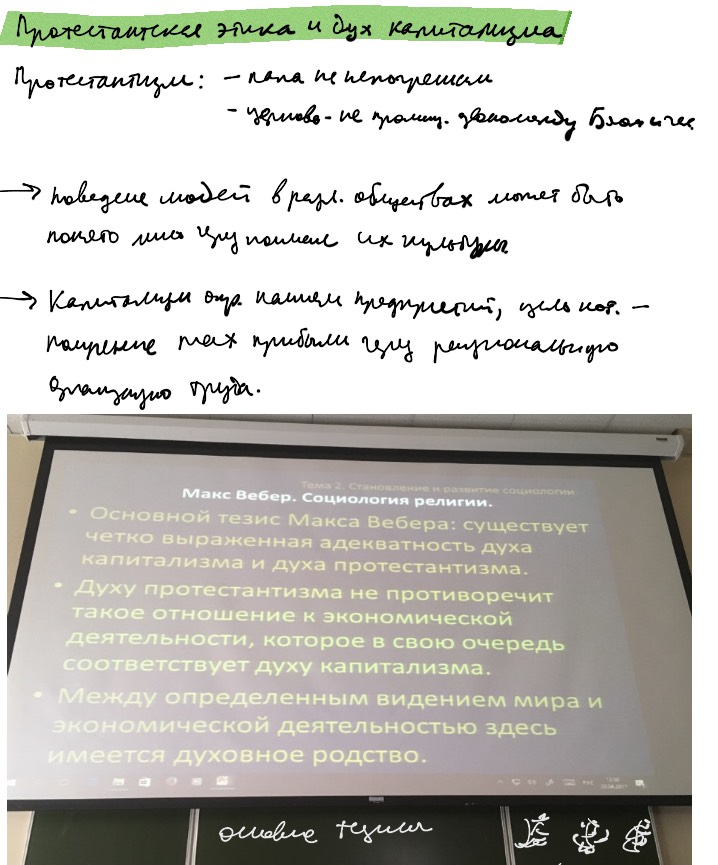 Протестантская этика и дух капитализма
Протестантизм: – папа не непогрешим
– церковь – не
→ поведение людей в разл. обществах может быть
понято через их культуры
→ Капитализм предприятий, цель кот. –
max прибыли через рациональную
организацию труда.
Тема 2. Становление и развитие социологии
Макс Вебер. Социология религии.
• Основной тезис Макса Вебера: существует
четко выраженная адекватность духа
капитализма и духа протестантизма.
• Духу протестантизма не противоречит
такое отношение к экономической
деятельности, которое в свою очередь
соответствует духу капитализма.
• Между определенным видением мира и
экономической деятельностью здесь
имеется духовное родство.